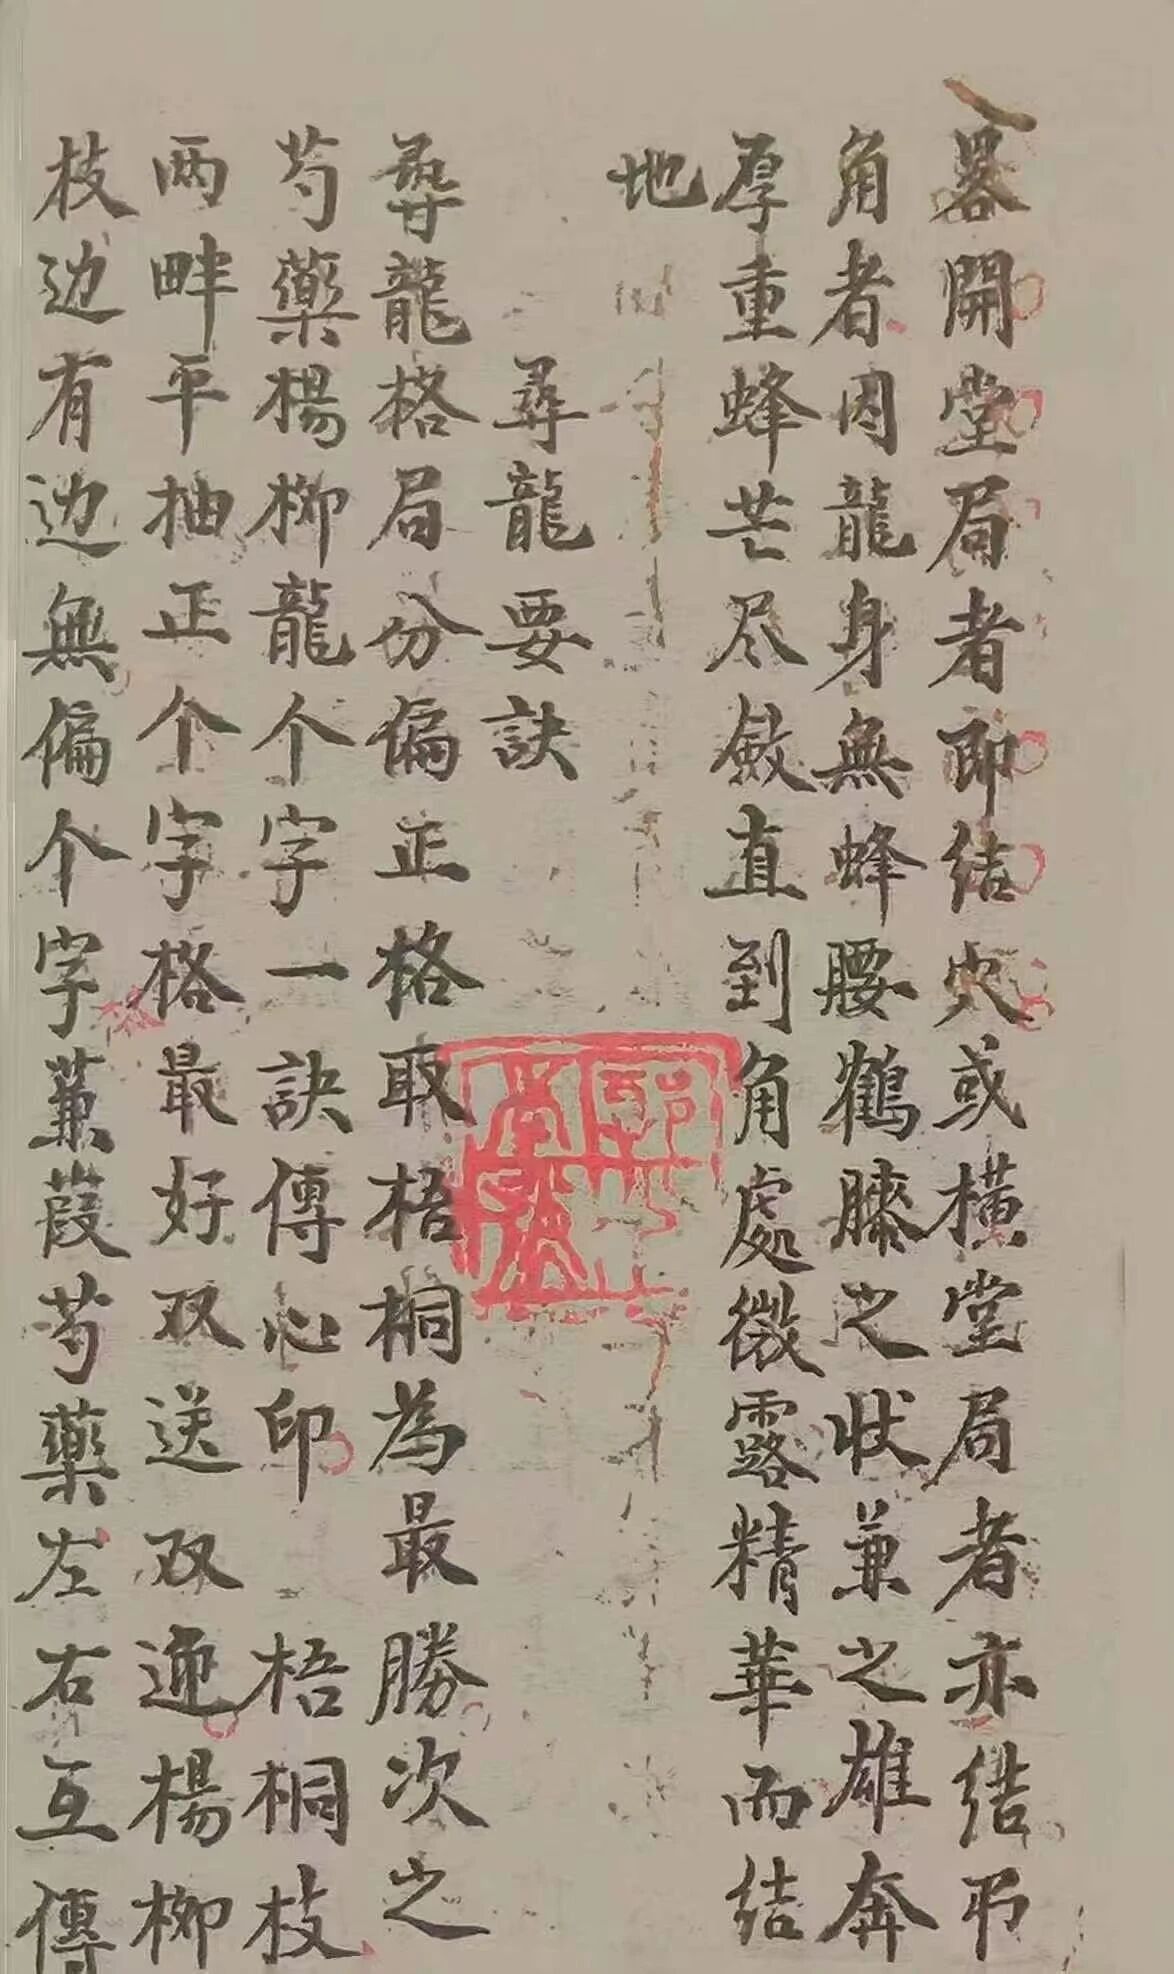 畧開堂局者即结穴或橫堂局者亦结吊
角者因龍身無蜂腰鶴膝之状兼之雄奔
厚重蜂芒尽斂直到角處微露精華而结
地
尋龍要訣
尋龍格局分偏正格取梧桐為最勝次之
芍藥楊柳龍个字一訣傳心印 梧桐枝
两畔平抽正个字格最好双送双迎楊柳
枝边有边無偏个字蒹葭芍藥左右互傳